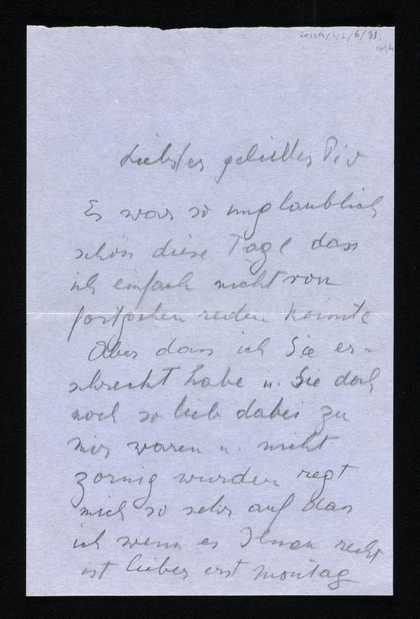 Liebster geliebter Div
Es war so unglaublich
schön diese Tage dass
ich einfach nicht von
fortgehen reden konnte
Aber dass ich Sie er-
schreckt habe u. Sie doch
noch so lieb dabei zu
mir waren u. nicht
zornig wurden regt
mich so sehr auf dass
ich wenn es Ihnen recht
ist lieber erst Montag